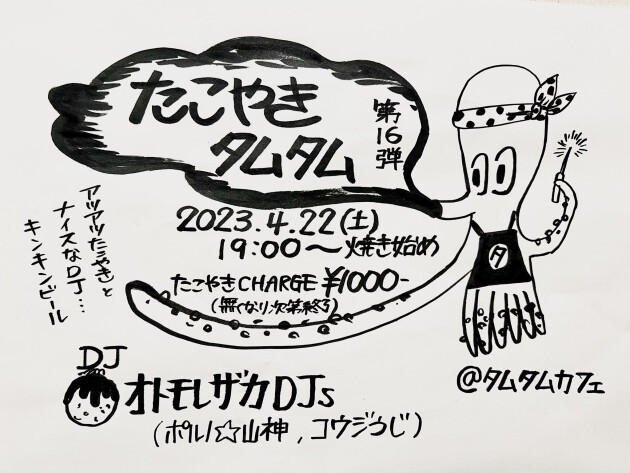 たこやき
タムタム
第16弾
2023.4.22(土)
19:00〜焼き始め
たこやきCHARGE ¥1000-
(無くなり次第終了)
アツアツたこやきと
ナイスなDJ…
キンキンビール
タ
@タムタムカフェ
DJ
オトモレザカDJs
(ポルノ☆山神,コウジうじ)